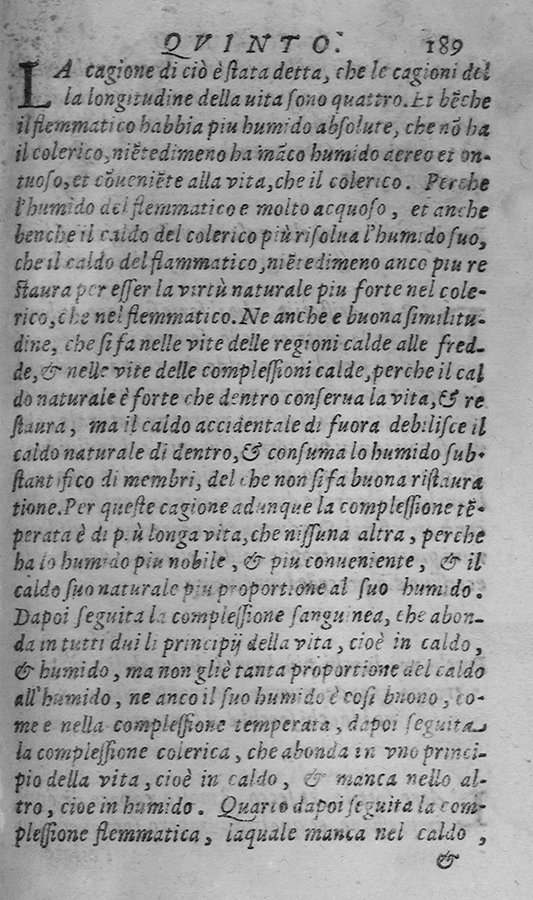 QVINTO. 189
LA cagione di ciò è ſtata detta, che le cagioni del
la longitudine della uita ſono quattro. Et bẽche
il flemmatico habbia piu humido abſolute, che nõ ha
il colerico, niẽtedimeno ha mãco humido aereo et on-
tuoſo, et cõueniẽte alla vita, che il colerico. Perche
l'humido del flemmatico e molto acquoſo, et anche
benche il caldo del colerico più riſolua l'humido ſuo,
che il caldo del flammatico, niẽtedimeno anco piu re
ſtaura per eſſer la virtù naturale piu forte nel cole-
rico, che nel flemmatico. Ne anche e buona ſimilitu-
dine, che ſi fa nelle vite delle regioni calde alle fred-
de, & nelle vite delle compleſſioni calde, perche il cal
do naturale è forte che dentro conſerua la vita, & re
ſtaura, ma il caldo accidentale di fuora debiliſce il
caldo naturale di dentro, & conſuma lo humido ſub-
ſtantifico di membri, del che non ſi fa buona riſtaura
tione. Per queſte cagione adunque la compleſſione tẽ-
perata è di più longa vita, che niſſuna altra, perche
ha lo humido piu nobile, & piu conueniente, & il
caldo ſuo naturale piu proportione al ſuo humido.
Dapoi ſeguita la compleſſione ſanguinea, che abon-
da in tutti dui li principij della vita, cioè in caldo,
& humido, ma non gliè tanta proportione del caldo
all'humido, ne anco il ſuo humido è coſi buono, co-
me e nella compleſſione temperata, dapoi ſeguita
la compleſſione colerica, che abonda in vno princi-
pio della vita, cioè in caldo, & manca nello al-
tro, cioe in humido. Quarto dapoi ſeguita la com-
pleſſione flemmatica, laquale manca nel caldo,
&